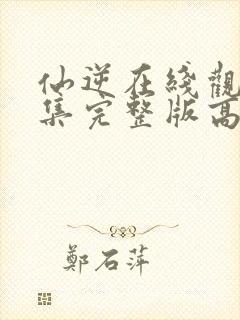 仙逆在綫觀
集完整版高
鄭石萍